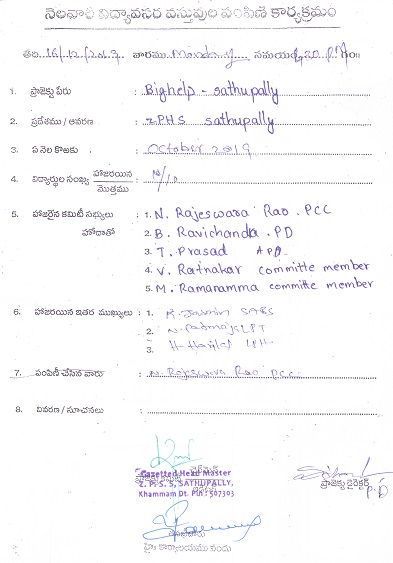 నెలవారి విద్యావసర వస్తువుల పంపిణీ కార్యక్రమం
తేది 16/12/2019 వారము Monday సమయం 4.30 P.M గం॥
1. ప్రాజెక్టు పేరు : Bighelp - sathupally
2. ప్రదేశము / ఆవరణ : ZPHS sathupally
3. ఏ నెల కొఱకు : October 2019
4. విద్యార్థుల సంఖ్య హాజరయిన / మొత్తము : /10
5. హాజరైన కమిటీ సభ్యులు : 1. N. Rajeswara Rao. PCC
హోదాతో 2. B. Ravichanda. PD
3. T. Prasad APD
4. V. Ratnakar committe member
5. M. Ramanamma committe member
6. హాజరయిన ఇతర ముఖ్యులు : 1.
2.
3.
7. పంపిణీ చేసిన వారు : N. Rajeswara Rao PCC
8. వివరణ / సూచనలు :
Gazetted Head Master
Z. P. S. S, SATHUPALLY,
Khammam Dt. Pin : 507303
ప్రాజెక్టు డైరెక్టర్
P.D